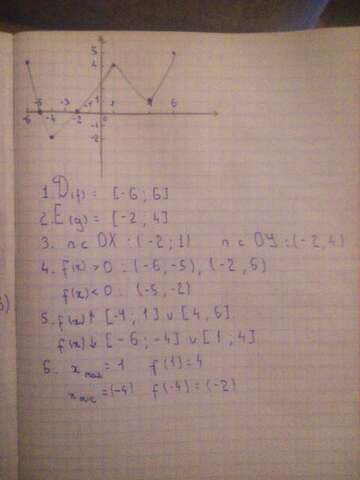 5
4
1
-6 -5 -4 -3 -2 -1 0 1 4 6
-1
-2
1. D(f) = [-6 ; 6]
2. E(g) = [-2 , 4]
3. п с OX : (-2 ; 1) п с OY : (-2, 4)
4. f(x) > 0 : (-6, -5), (-2, 6)
f(x) < 0 : (-5, -2)
5. f(x) ↑ [-4 , 1] ∪ [4, 6]
f(x) ↓ [-6 ; -4] ∪ [1 ; 4]
6. x max = 1 f(1) = 4
x = (-4) f(-4) = (-2)